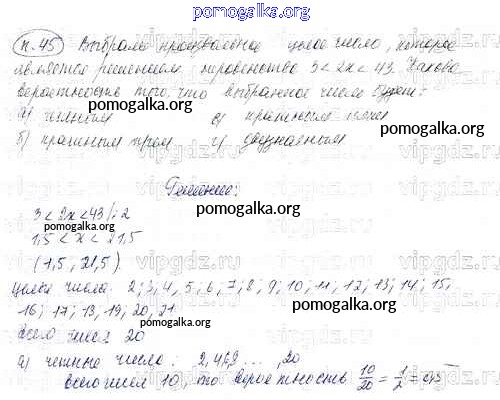 pomogalka.org
п. 45 Выбрали произвольное целое число, которое
является решением неравенства 3 < 2x < 43. Какова
вероятность того, что выбранное число будет:
а) четным в) кратным пяти
б) кратным трем г) двузначным
pomogalka.org
Решение:
pomogalka.org
3 < 2x < 43 /: 2
pomogalka.org
1,5 < x < 21,5
(1,5; 21,5)
целые числа 2; 3; 4, 5; 6; 7; 8; 9; 10; 11; 12; 13; 14; 15;
16; 17; 13, 19; 20, 21
pomogalka.org
всего чисел 20
а) четные числа: 2, 4, 6, 8 ..., 20
всего чисел 10, то вероятность 10/20 = 1/2 = 0,5
pomogalka.org